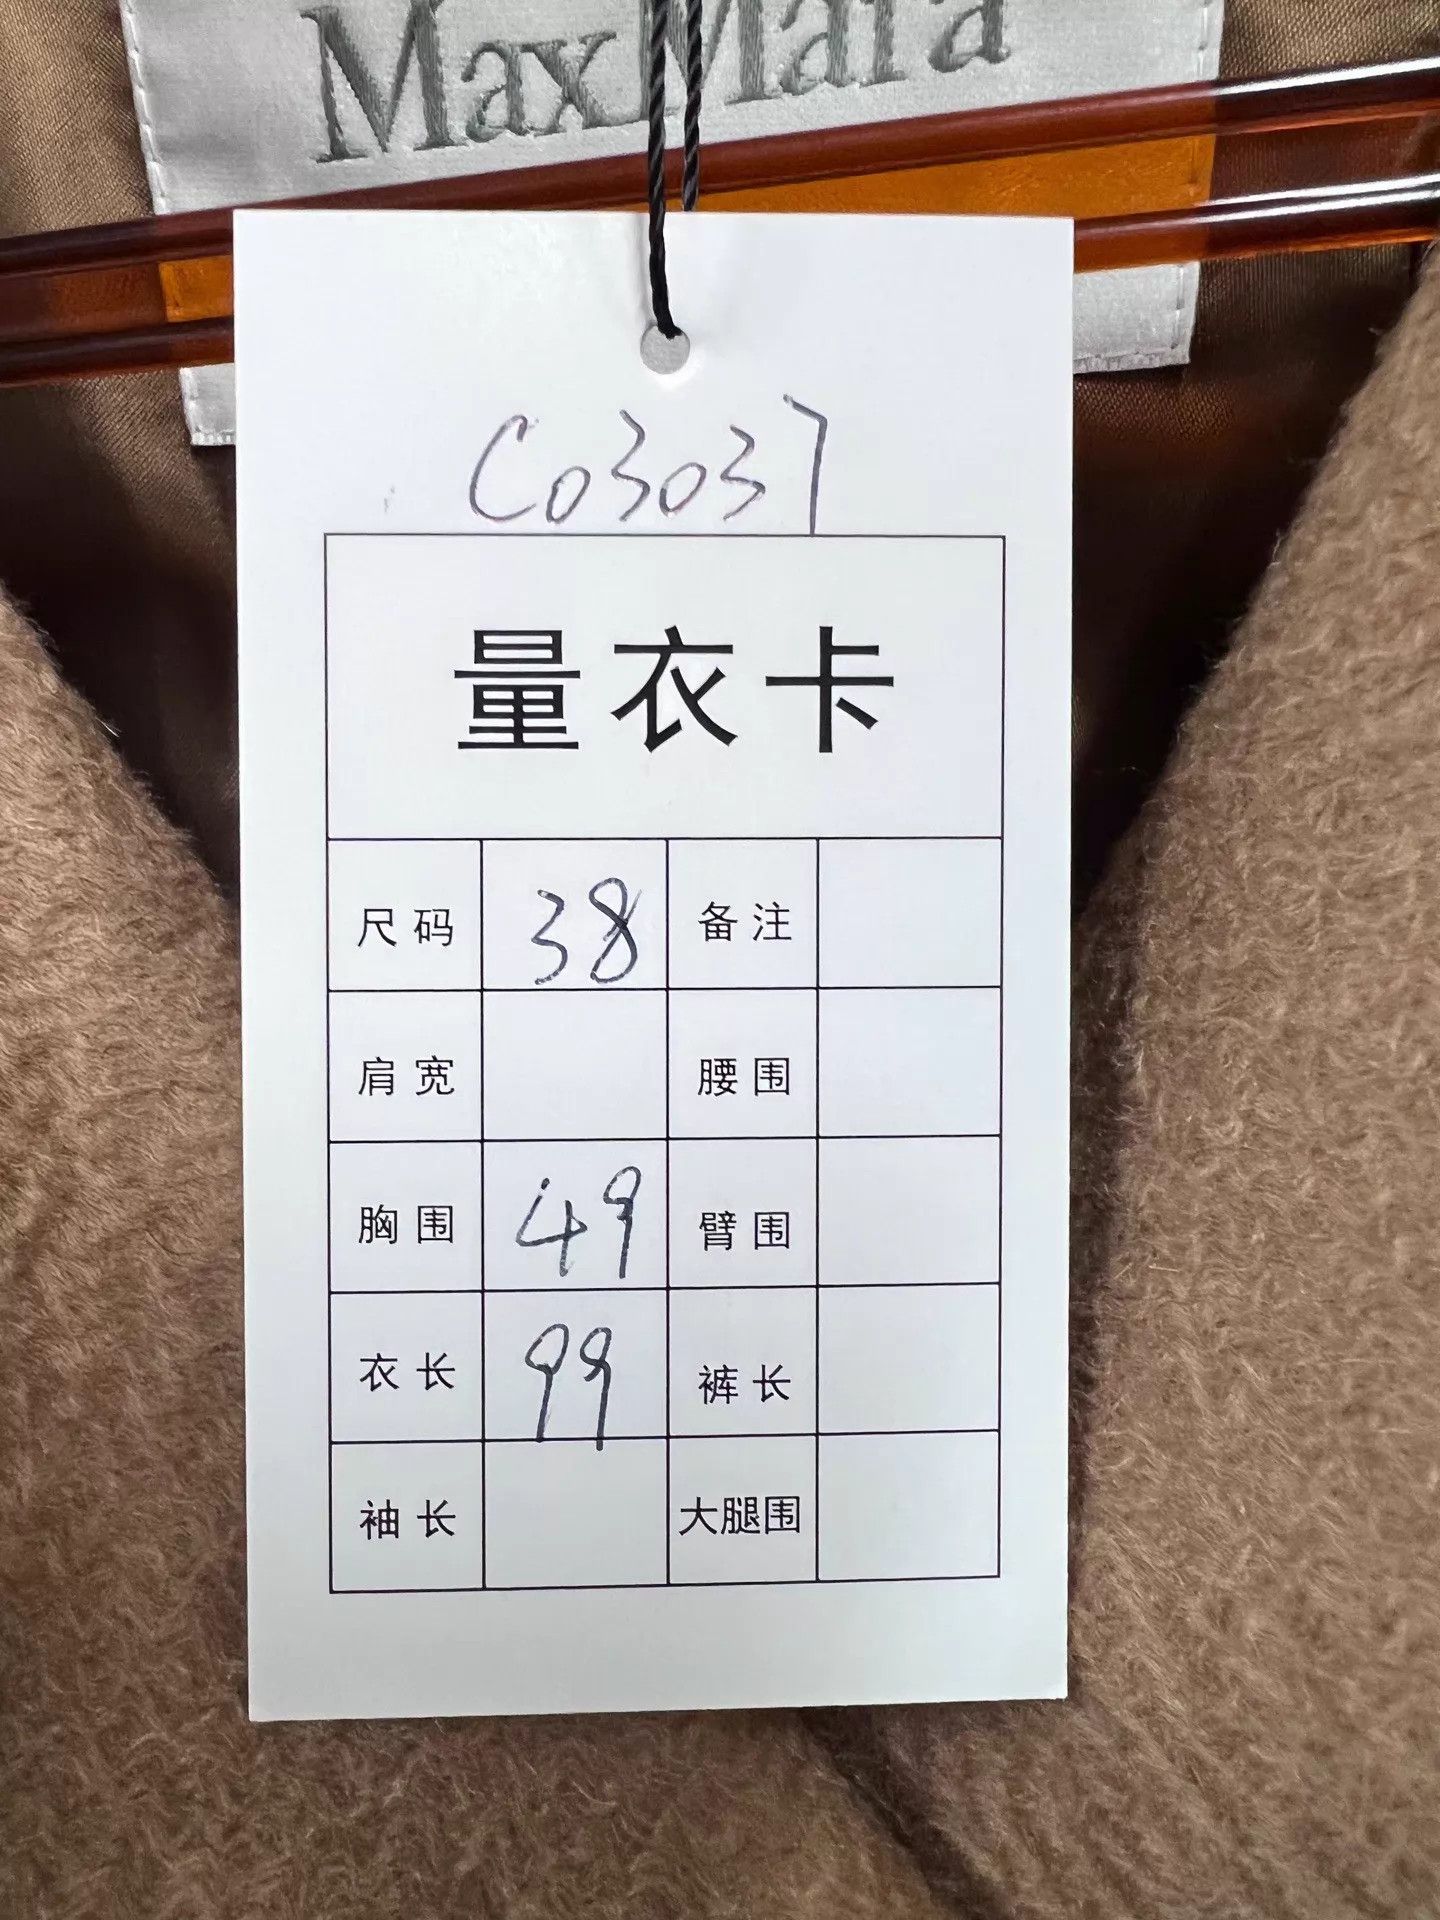 MaxMara
C03037
量衣卡
尺码 38 备注
肩宽 腰围
胸围 49 臂围
衣长 99 裤长
袖长 大腿围